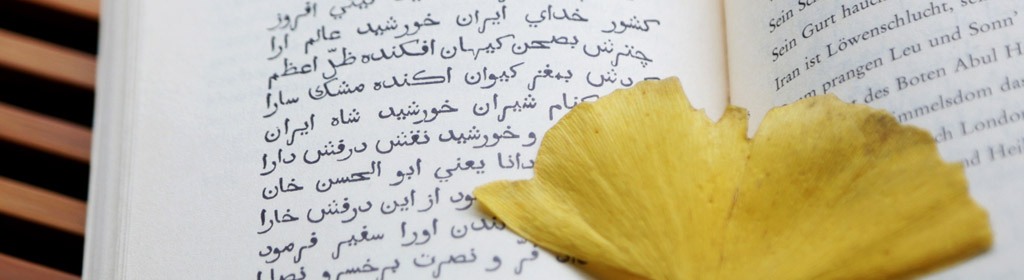 گيتي افروز
كشور خداي ايران خورشيد عالم ارا
چترش بصحن كيهان افكنده ظلّ اعظم
گردش بمغز كيوان اكنده مشك سارا
كنام شيران خورشيد شاه ايران
و خورشيد نقش درفش دارا
دانا يعني ابو الحسن خان
از اين درفش خارا
لندن اورا سفير فرمود
فر و نصرت برخسرو نصارا
Sein
Sein Gurt hauch
Iran ist Löwenschlucht,
prangen Leu und Sonn'
des Boten Abul H
mmelsdom da
ch London
nd Heil